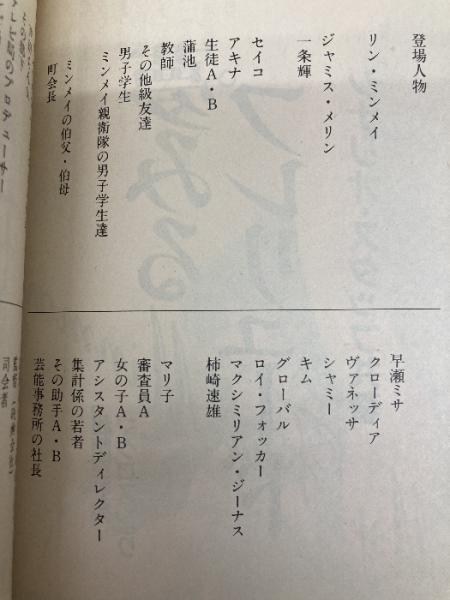 登場人物
リン・ミンメイ
一条輝
ジャミス・メリン
セイコ
アキナ
生徒A・B
蒲池
教師
その他級友達
男子学生
ミンメイ親衛隊の男子学生達
ミンメイの伯父・伯母
町会長
テレビ局のプロデューサー
早瀬ミサ
クローディア
ヴァネッサ
シャミー
キム
グローバル
ロイ・フォッカー
マクシミリアン・ジーナス
柿崎速雄
マリ子
審査員A
女の子A・B
アシスタントディレクター
集計係の若者
その助手A・B
芸能事務所の社長
司会者